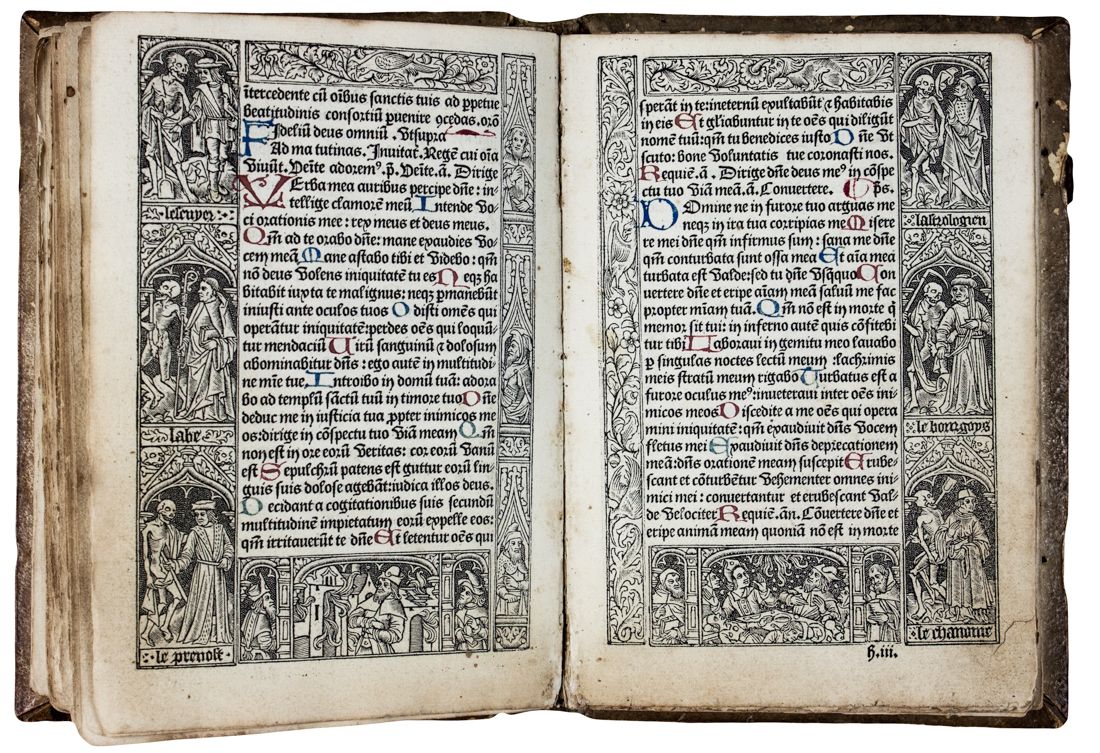 ītercedente cū oībus sanctis tuis ad ꝑpetue
beatitudinis consortiū ꝑuenire ꝯcedas. orō
Fidelīū deus omniū. Vtsupra
Ad ma tutinas. Inuitat. Regē cui oīa
Viuūt. Veīte adorem⁹. p̄. Veīte. ā. Dirige
Verba mea auribus percipe dn̄e: in-
tellige clamorē meū Intende Vo-
ci orationis mee: rex meus et deus meus.
Qm̄ ad te orabo dn̄e: mane exaudies Vo-
cem meā Mane astabo tibi et Videbo: qm̄
nō deus Volens iniquitatē tu es Neqꝫ ha
bitabit iuxta te malignus: neqꝫ ꝑmanebūt
iniusti ante oculos tuos Odisti omēs qui
operātur iniquitatē: perdes oēs qui loquū-
tur mendaciū Uirū sanguinū & dolosum
abominabitur dn̄s: ego autē in multitudi-
ne mīe tue. Introibo in domū tuā: adora
bo ad templū sāctū tuū in timore tuo Dn̄e
deduc me in iusticia tua ꝓpter inimicos me
os: dirige in cōspectu tuo Viā meam Qm̄
non est in ore eorū Veritas: cor eorū Vanū
est Sepulchrū patens est guttur eorū lin-
guis suis dolose agebāt: iudica illos deus.
Decidant a cogitationibus suis secundū
multitudinē impietatum eorū expelle eos:
qm̄ irritauerūt te dn̄e Et letentur oēs qui
lescuyer
labe
le preuost
sperāt in te: ineternū exultabūt & habitabis
in eis Et gl'iabuntur in te oēs qui diligūt
nomē tuū: qm̄ tu benedices iusto Dn̄e Vt
scuto: bone Voluntatis tue coronasti nos.
Requiē. ā. Dirige dn̄e deus me⁹ in cōspe
ctu tuo Viā meā. ā. Conuertere. Ps.
Domine ne in furore tuo arguas me
neqꝫ in ira tua corripias me Misere
re mei dn̄e qm̄ infirmus sum: sana me dn̄e
qm̄ conturbata sunt ossa mea Et aīa mea
turbata est Valde: sed tu dn̄e Vsqꝫquo Con
uertere dn̄e et eripe aīam meā saluū me fac
propter mīam tuā. Qm̄ nō est in morte q̄
memor sit tui: in inferno autē quis cōfitebi
tur tibi Laboraui in gemitu meo lauabo
ꝑ singulas noctes lectū meum: lachrimis
meis stratū meum rigabo Turbatus est a
furore oculus me⁹: inueteraui inter oēs ini-
micos meos Discedite a me oēs qui opera
mini iniquitatē: qm̄ exaudiuit dn̄s Vocem
fletus mei Exaudiuit dn̄s deprecationem
meā: dn̄s orationē meam suscepit Erube-
scant et cōturbētur Vehementer omnes ini-
mici mei: conuertantur et erubescant Val-
de Velociter Requiē. an. Cōuertere dn̄e et
eripe animam meam quoniā nō est in morte
lastrologien
le bourgoys
le chanoine
h.iii.